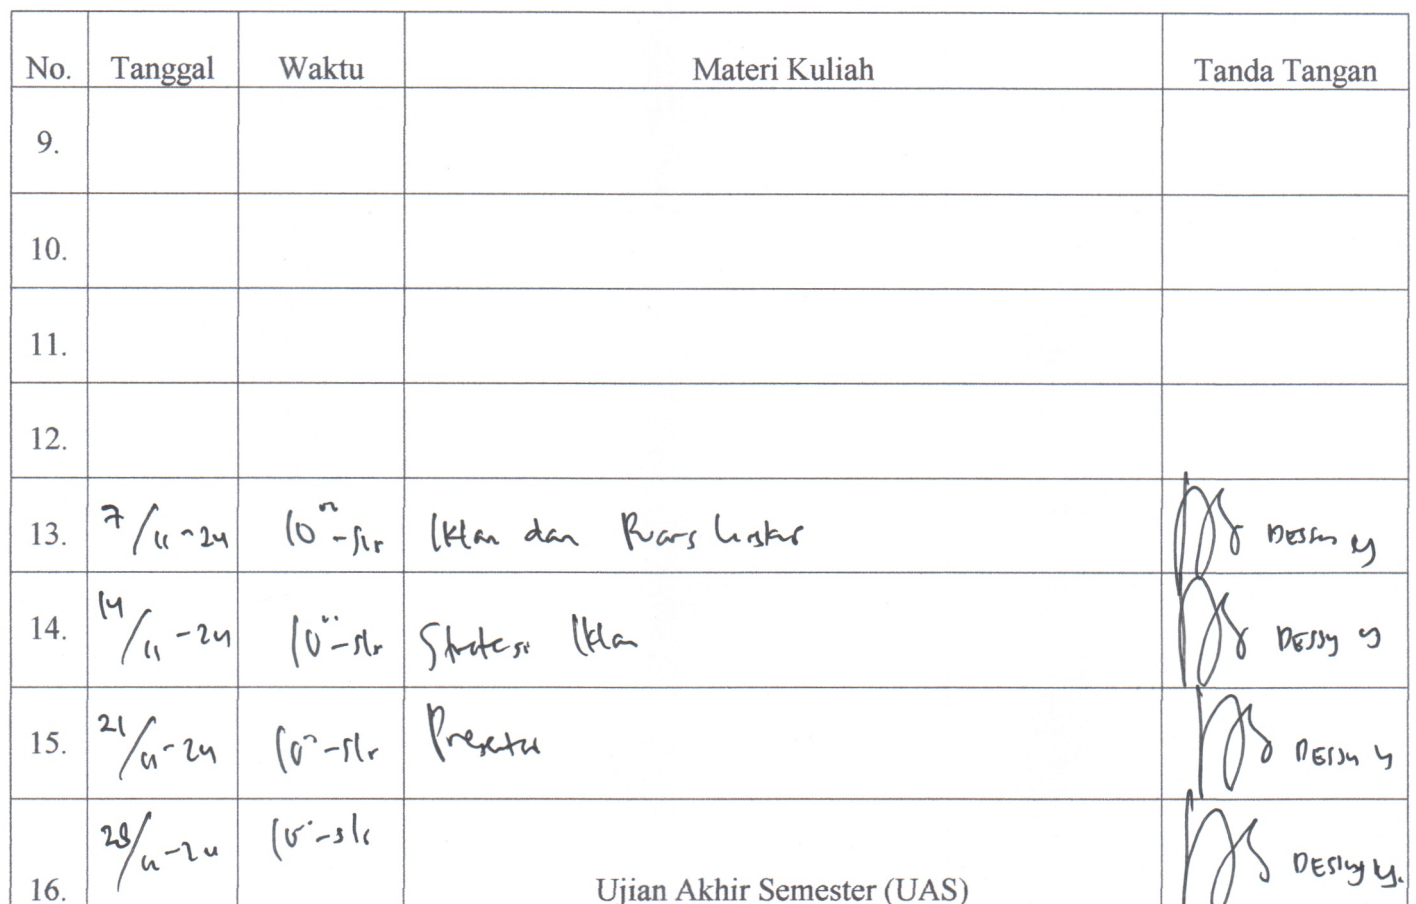 No. Tanggal Waktu Materi Kuliah Tanda Tangan
9.
10.
11.
12.
13. 7/11-24 10⁰⁰-slr Iklan dan Ruang DESSY Y
14. 14/11-24 10⁰⁰-slr Strategi Iklan DESSY Y
15. 21/11-24 10⁰⁰-slr DESSY Y
16. 28/11-24 10⁰⁰-slr Ujian Akhir Semester (UAS) DESSY Y.